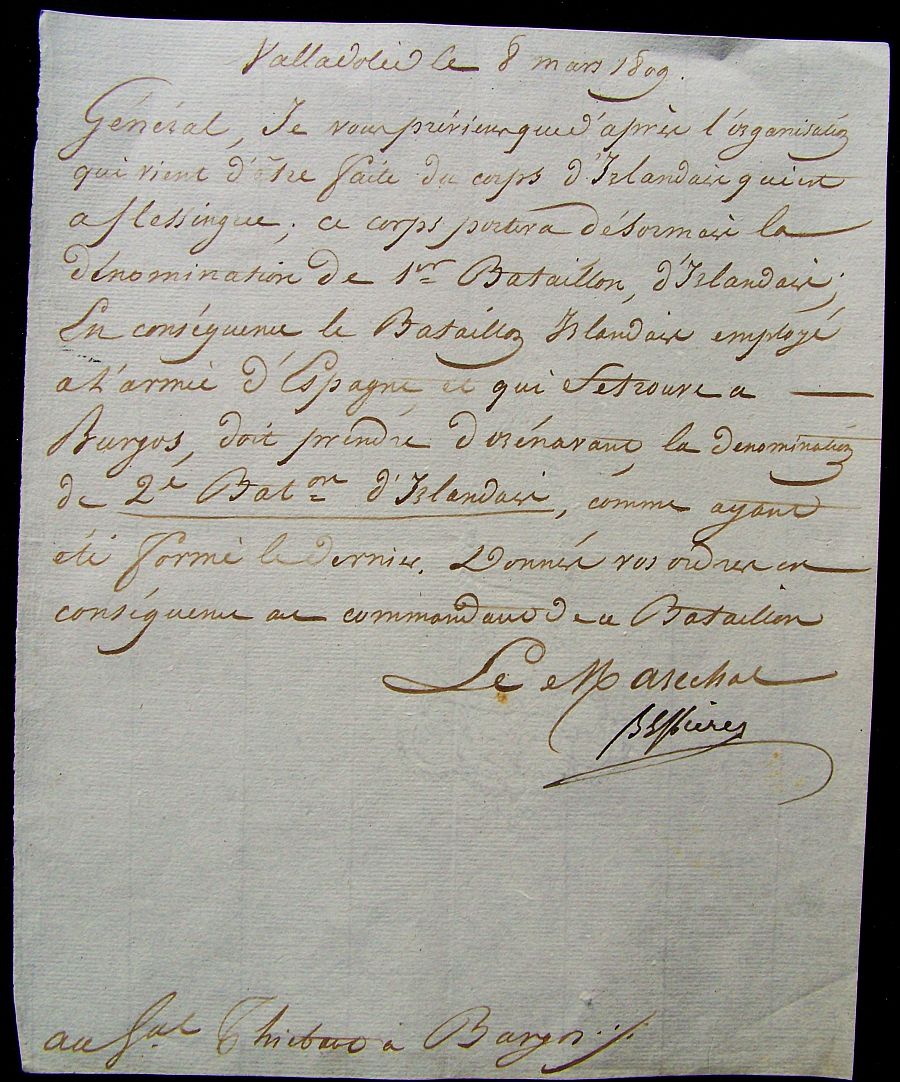 Valladolid le 8 mars 1809.
Général, Je vous préviens que d'après l'organisation
qui vient d'être faite du corps d'Irlandais qui est
a flessingue ; ce corps portera désormais la
dénomination de 1er Bataillon, d'Irlandais ;
En conséquence le Bataillon Irlandais employé
a l'armée d'Espagne, et qui se trouve a —
Burgos, doit prendre dorénavant la denomination
de 2e Baton d'Irlandais, comme ayant
été formé le dernier. Donnés vos ordres en
conséquence au commandant de ce Bataillon
Le Marechal
Bessières
au Gal Thiebault a Burgos ./.